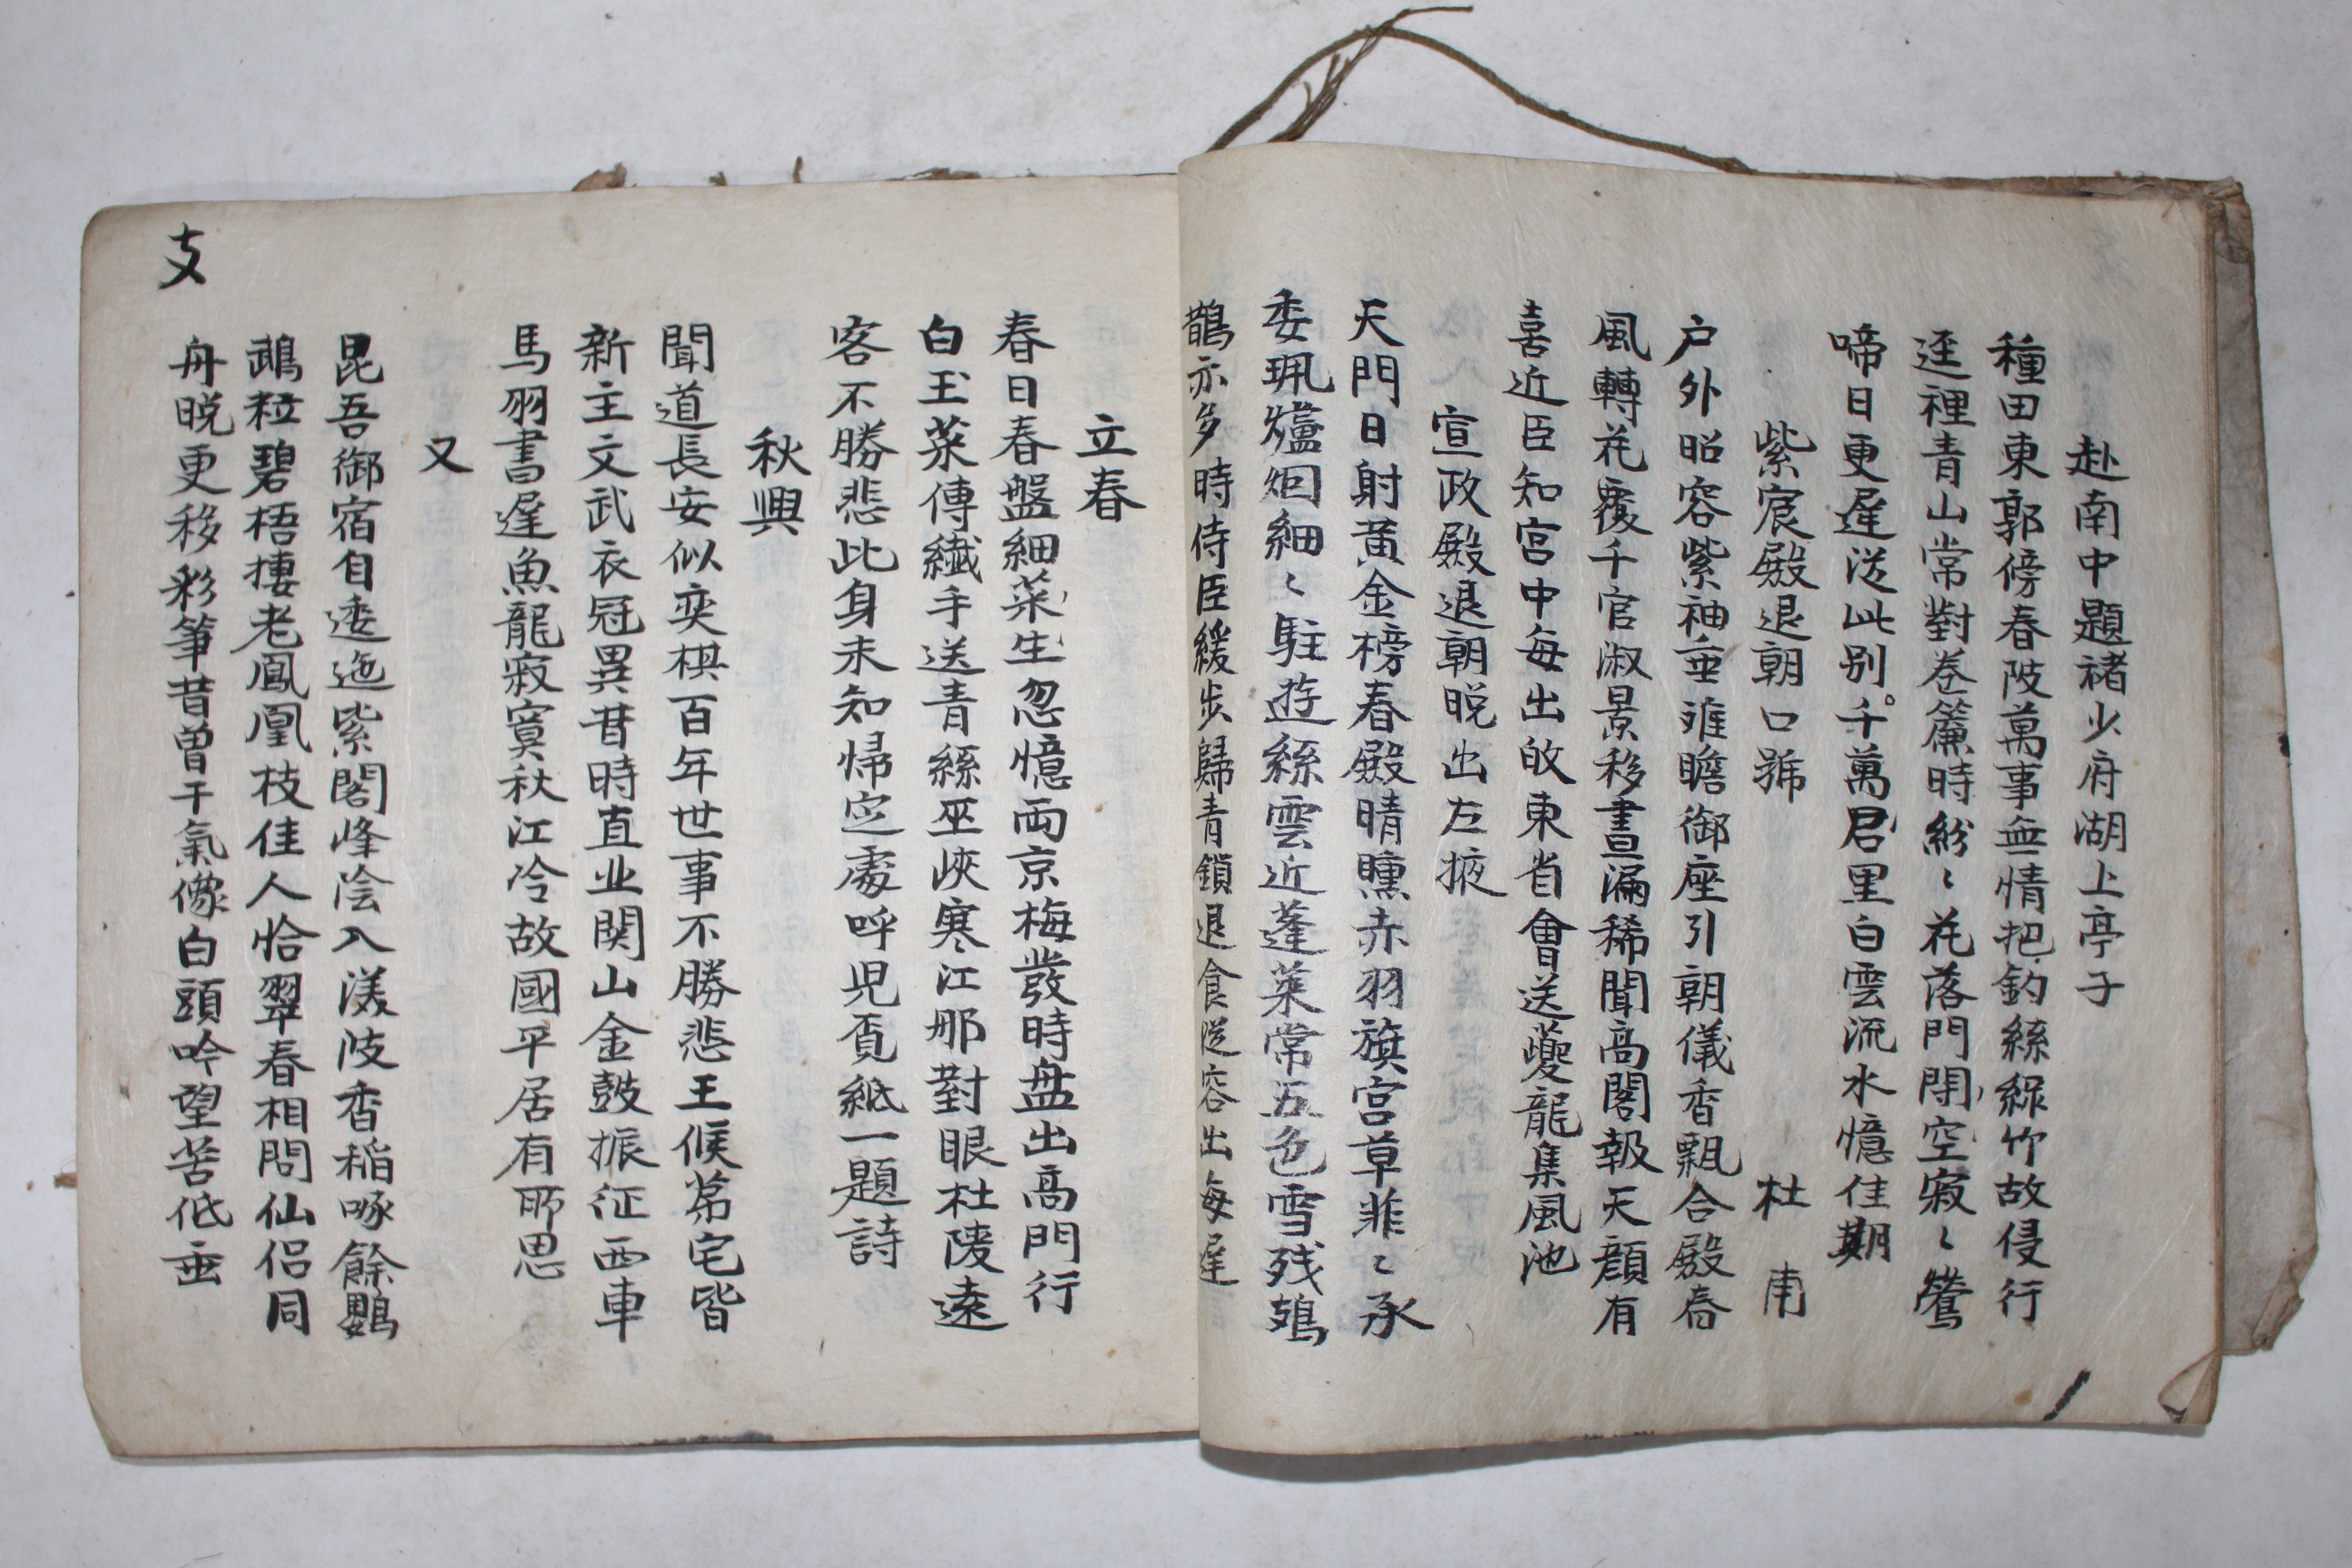 赴南中題褚少府湖上亭子
種田東郭傍春陂萬事無情把釣絲綠竹故侵行
逕裡青山常對卷簾時紛〻花落門閉空寂〻鶯
啼日更遲從此別千萬君里白雲流水憶佳期
紫宸殿退朝口號 杜甫
户外昭容紫袖垂雖瞻御座引朝儀香飄合殿春
風轉花覆千官淑景移晝漏稀聞高閣報天顏有
喜近臣知宮中每出皈東省會送夔龍集風池
宣政殿退朝晩出左掖
天門日射黃金榜春殿晴曛赤羽旗宮草菲〻承
委珮爐烟細〻駐遊絲雲近蓬萊常五色雪残鳷
鵲亦多時侍臣緩步歸青鎖退食從容出每遲
立春
春日春盤細菜生忽憶両京梅發時盘出高門行
白玉菜傳纖手送青絲巫峽寒江那對眼杜陵遠
客不勝悲此身未知帰定處呼児覓紙一題詩
秋興
聞道長安似奕棋百年世事不勝悲王候第宅皆
新主文武衣冠異昔時直业関山金鼓振征西車
馬羽書遲魚龍寂寞秋江冷故國平居有所思
又
昆吾御宿自逶迤紫閣峰陰入渼陂香稲啄餘鸚
鵡粒碧梧捿老鳳凰枝佳人恰翠春相問仙侶同
舟晩更移彩筆昔曾干氣像白頭吟望苦低垂
支